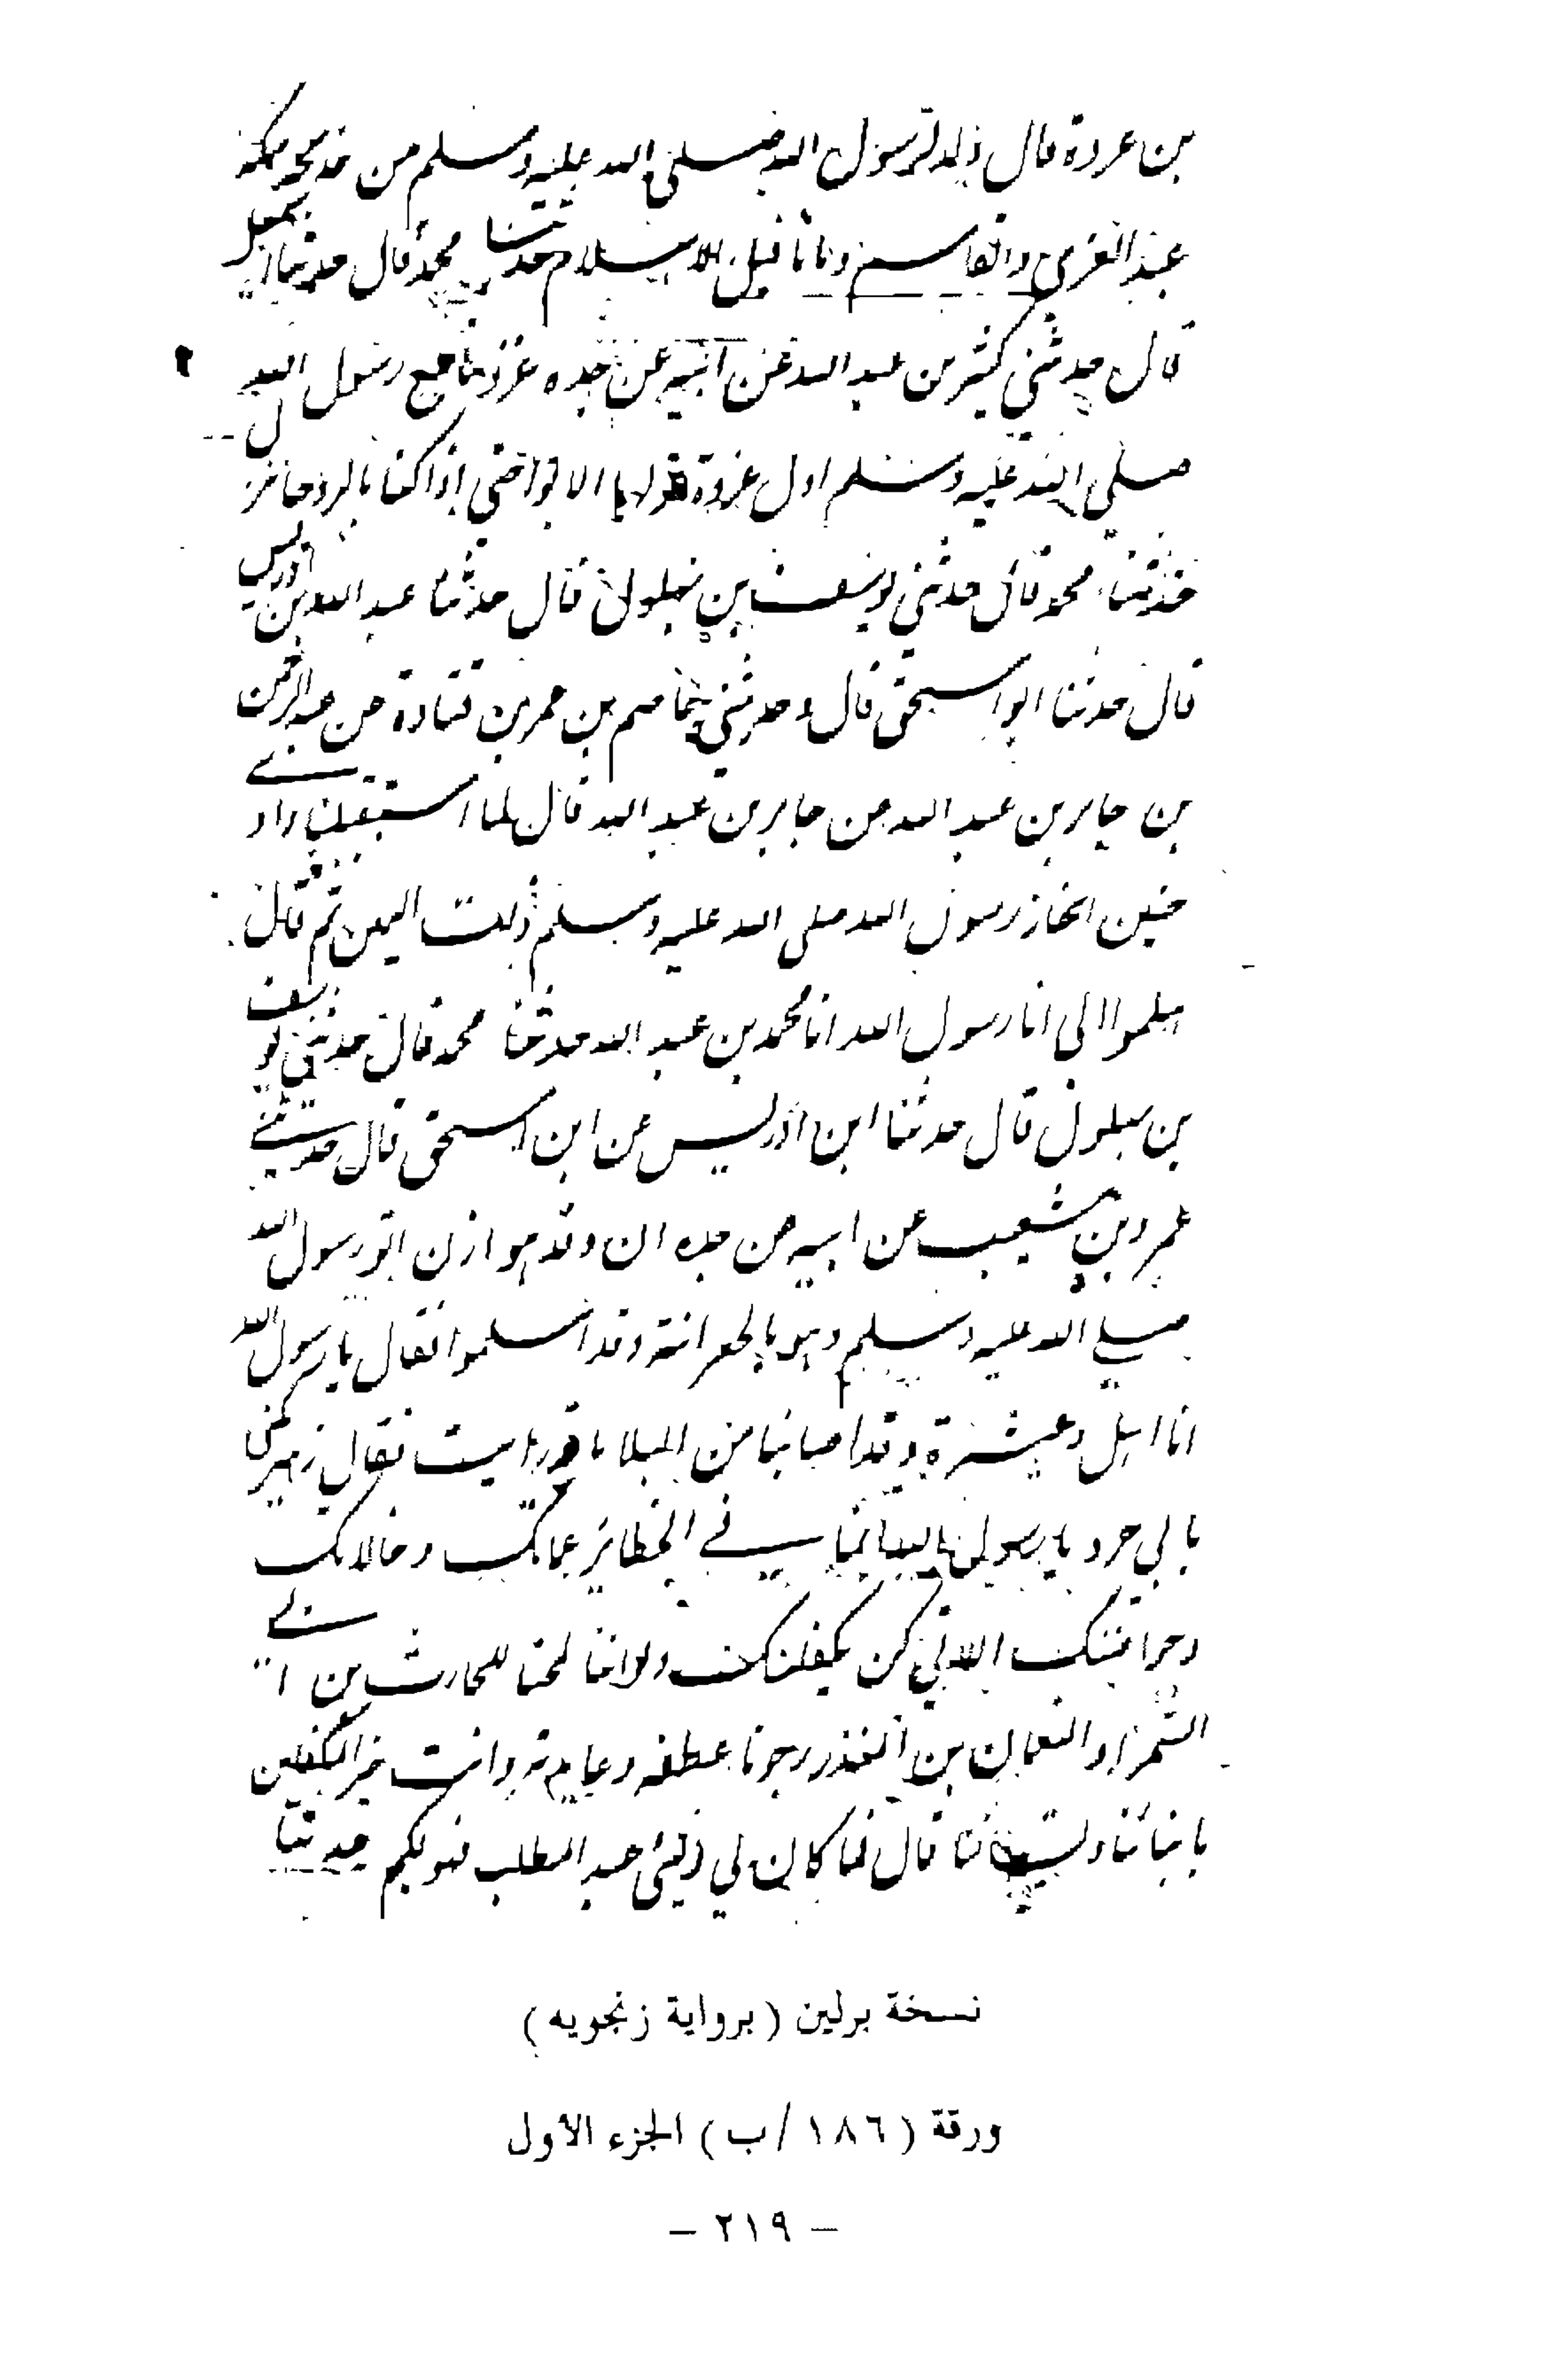 بن عروة قال ولد لرسول الله صلى الله عليه وسلم من خديجة بمكة
عبد العزى والقاسم وماتا قبل الاسلام حدثنا محمد قال حدثنا اسمعيل
قال حدثني كثير بن عبد الله عن ابيه عن جده غزونا مع رسول الله
صلى الله عليه وسلم اول غزوة غزاها الابوا حتى اذا كنا بالروحا نزل
حدثنا محمد قال حدثني يوسف بن بهلول قال حدثنا عبد الله بن ادريس
قال حدثنا ابو اسحق قال وحدثني عاصم بن عمر بن قتادة عن عبد الرحمن
بن جابر بن عبد الله عن جابر بن عبد الله قال لما استقبلنا وادي
حنين انحاز رسول الله صلى الله عليه وسلم ذات اليمين ثم قال
هلموا الى انا رسول الله انا محمد بن عبد الله حدثنا محمد قال حدثني يوسف
بن بهلول قال حدثنا ابن ادريس عن ابن اسحق قال حدثني
عمرو بن شعيب عن ابيه عن جده ان وفد هوازن اتو رسول الله
صلى الله عليه وسلم وهو بالجعرانة وقد اسلموا فقال يا رسول الله
انا اهل وعشيرة وقد اصابنا من البلا ما قد رايت فقال زهير يكنى
بابي صرد يا رسول الله انما في الحظائر عماتك وخالاتك
وحواضنك اللاتي كن يكفلنك ولو انا لمحنا للحارث بن ابي
الشمر او النعمان بن المنذر رجونا عطفه وعايدته وانت خير المكفلين
بابنائنا ونسائنا قال فما كان لي ولبني عبد المطلب فهو لكم حدثنا
نسخة برلين (برواية زنجويه)
ورقة (١٨٦/ب) الجزء الأول
– ٢١٩ –